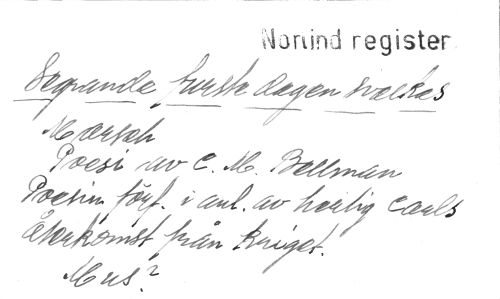 Norlind register
Segrande furste dagen svalkas
Marsch
Poesi av C. M. Bellman
Poesin förf. i anl. av hertig Carls
Återkomst från kriget.
Mus?